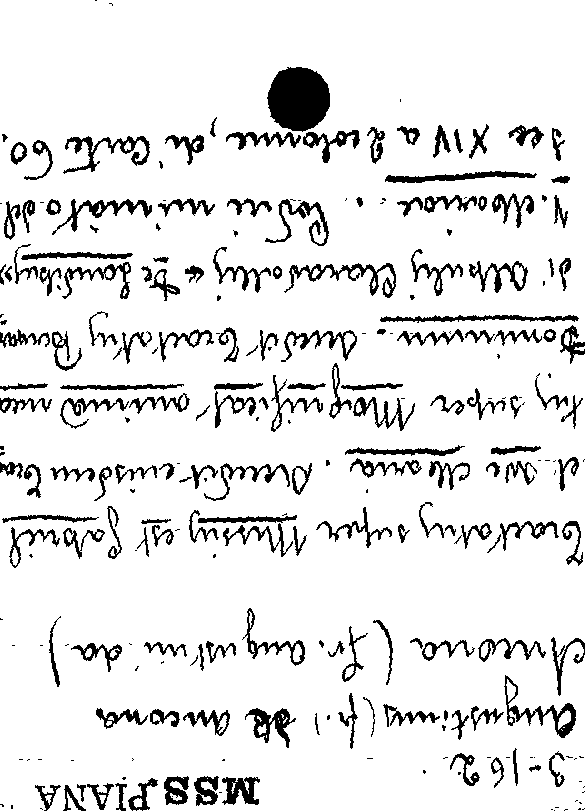 MSS.PIANA
3-162.
Augustinus (fr.) de Ancona
Ancona (fr. Augustini da)
Tractatus super Missus est Gabriel
et Ave Maria. Accedit eiusdem Trac
tus super Magnificat anima mea
Dominum. Accedit Tractatus Bernar
di Abbatis Claravallis « De Laudibus
V. Mariae. Codice miniato del
Sec XIV a 2 colonne, di Carte 60.